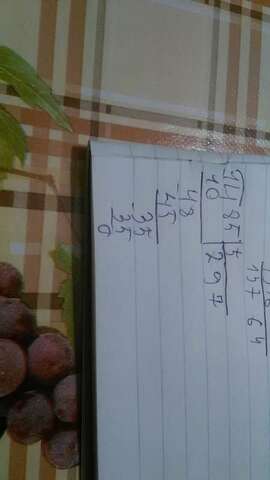 157 64
1485 5
10 297
-48
45
-35
35
0